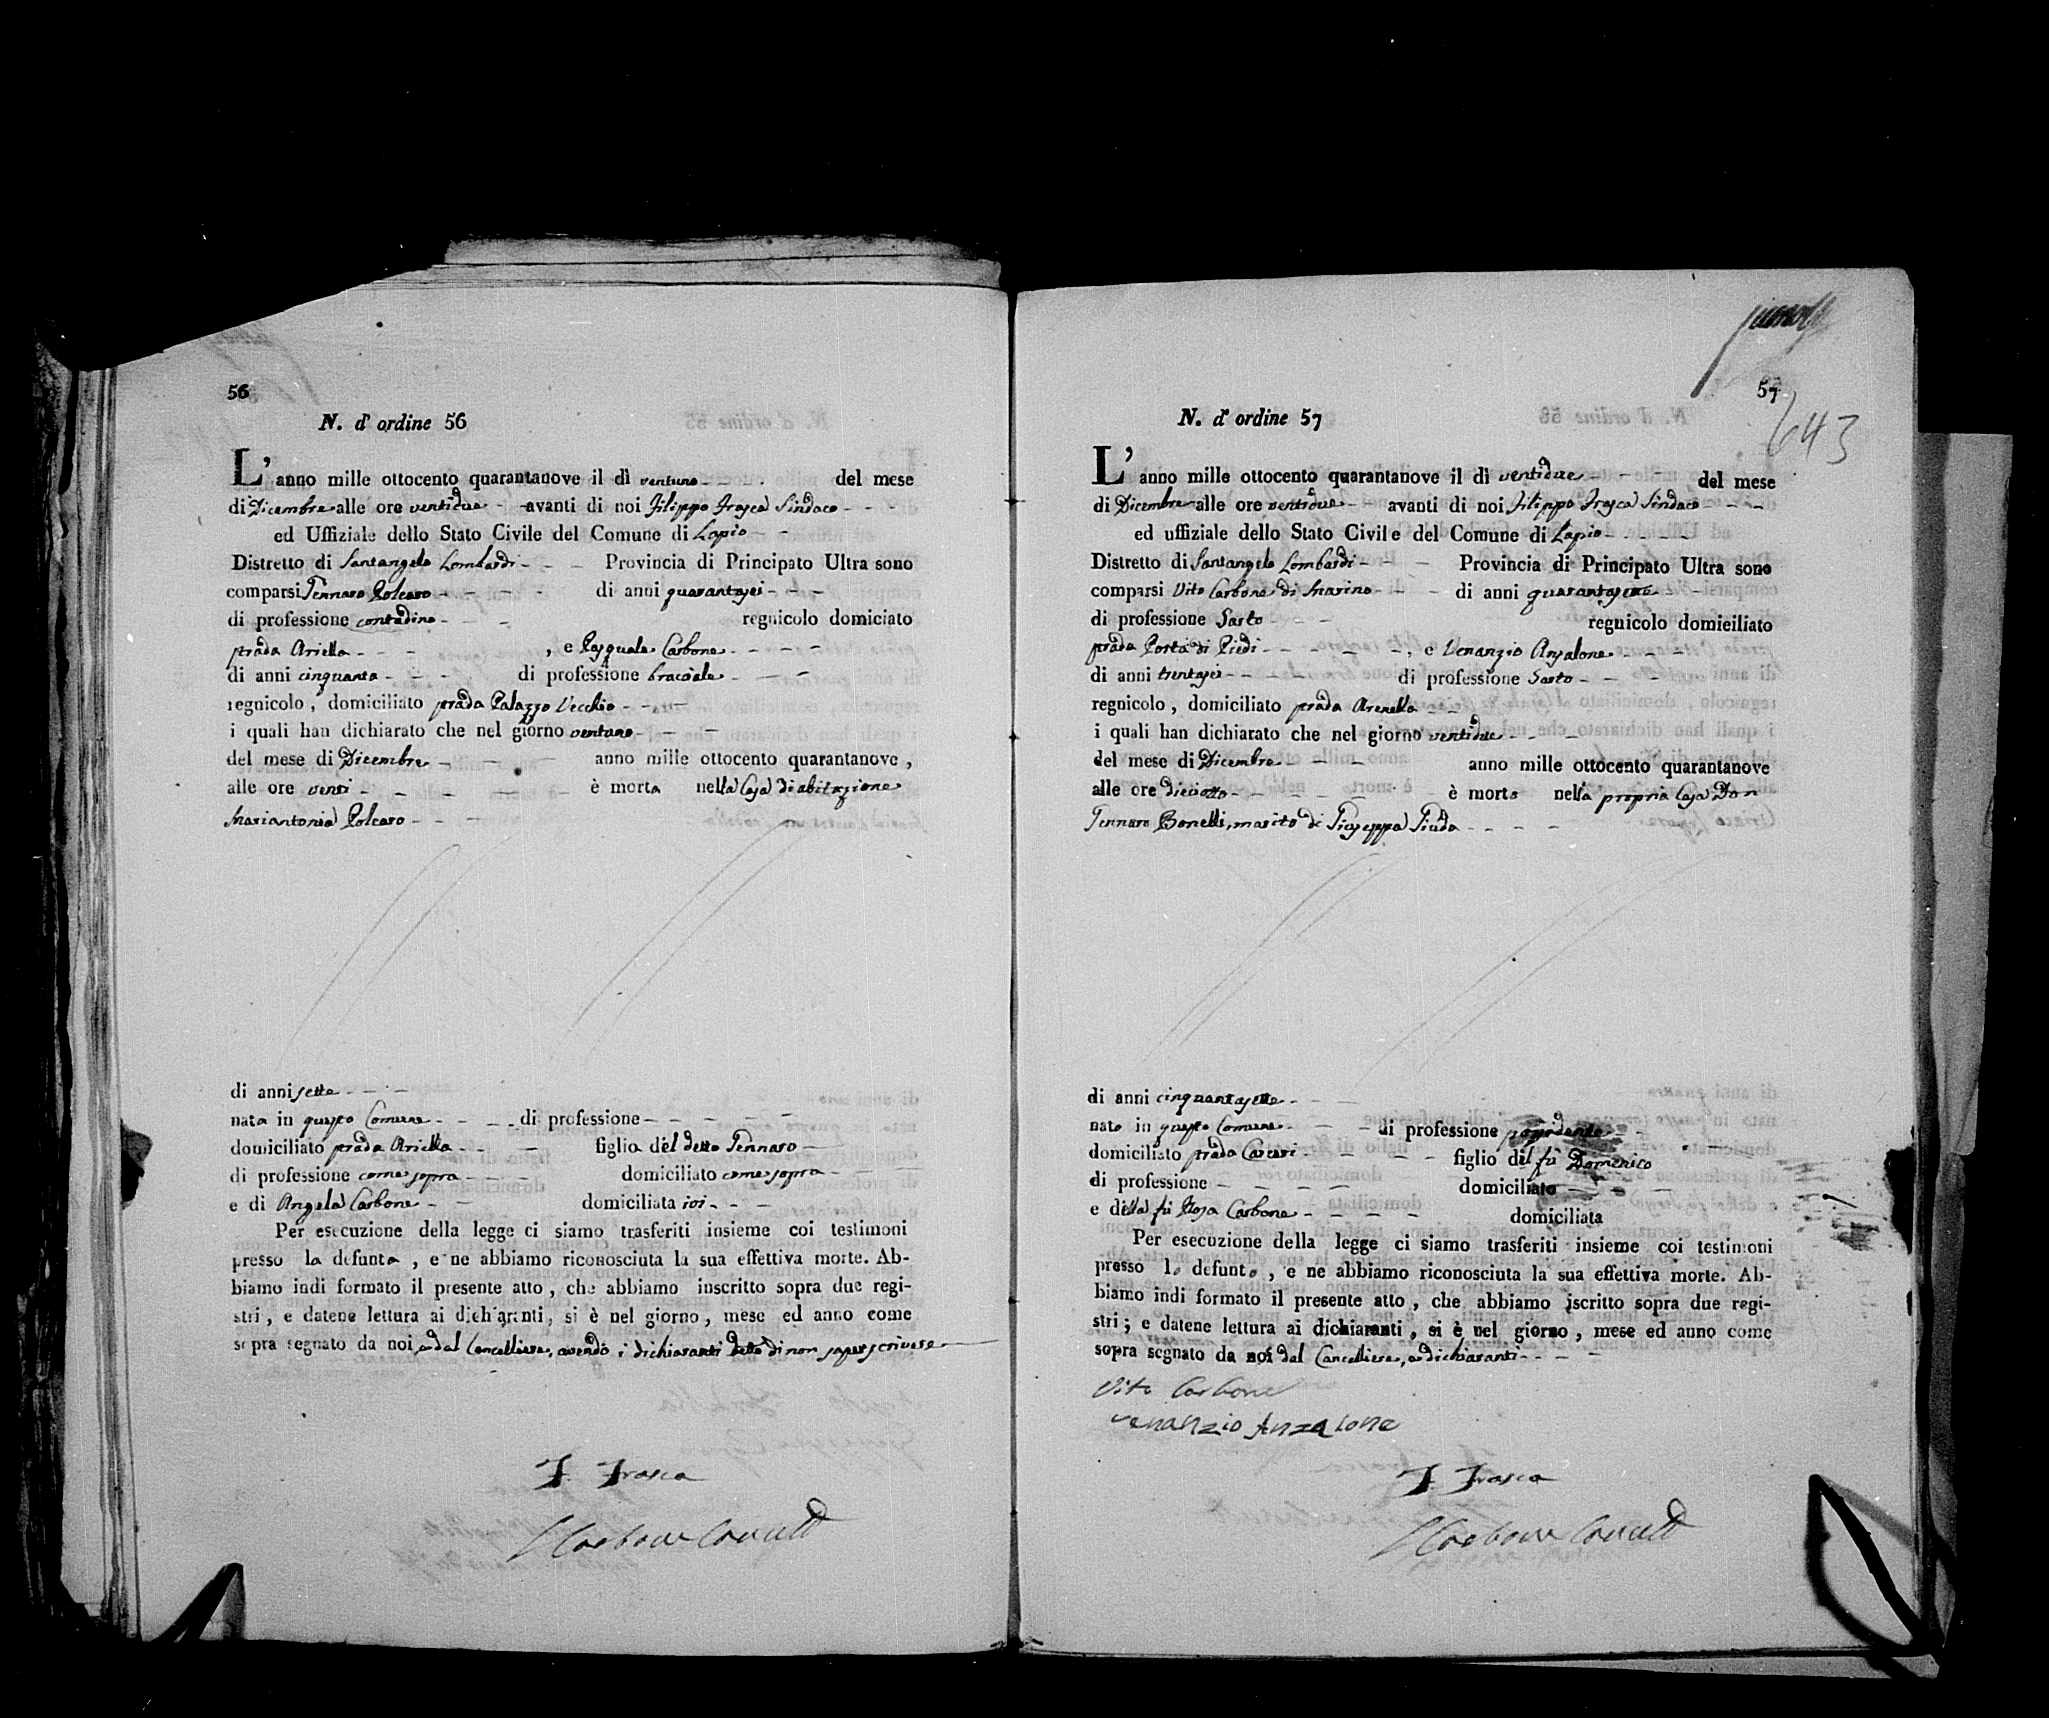 56
N. d' ordine 56
L' anno mille ottocento quarantanove il dì ventuno del mese
di Dicembre alle ore ventidue avanti di noi Filippo Frasca Sindaco
ed Uffiziale dello Stato Civile del Comune di Lapio
Distretto di Santangelo Lombardi Provincia di Principato Ultra sono
comparsi Gennaro Polcaro di anni quarantasei
di professione contadino regnicolo domiciato
strada Ariella , e Pasquale Carbone
di anni cinquanta di professione bracciale
regnicolo , domiciliato strada Palazzo Vecchio
i quali han dichiarato che nel giorno ventuno
del mese di Dicembre anno mille ottocento quarantanove ,
alle ore venti è morta nella Casa di abitazione
Mariantonia Polcaro
di anni sette
nata in questo Comune di professione
domiciliato strada Ariella figlia del detto Gennaro
di professione come sopra domiciliato come sopra
e di Angela Carbone domiciliata ivi
Per esecuzione della legge ci siamo trasferiti insieme coi testimoni
presso la defunta , e ne abbiamo riconosciuta la sua effettiva morte. Ab-
biamo indi formato il presente atto , che abbiamo inscritto sopra due regi-
stri , e datene lettura ai dichiaranti, si è nel giorno , mese ed anno come
sopra segnato da noi, e dal Cancelliere, avendo i dichiaranti detto di non saper scrivere
F. Frasca
Carbone
57
643
N. d' ordine 57
L' anno mille ottocento quarantanove il dì ventidue del mese
di Dicembre alle ore ventidue avanti di noi Filippo Frasca Sindaco
ed uffiziale dello Stato Civile del Comune di Lapio
Distretto di Santangelo Lombardi Provincia di Principato Ultra sono
comparsi Vito Carbone di Marino di anni
di professione Sarto regnicolo domiciliato
strada Porta di Piedi , e Venanzio Anzalone
di anni trentasei di professione Sarto
regnicolo , domiciliato strada Arenella
i quali han dichiarato che nel giorno ventidue
del mese di Dicembre anno mille ottocento quarantanove
alle ore dieciotto è morto nella propria Casa Don
Gennaro Bonelli, marito di Giuseppa Giuda
di anni cinquantasette
nato in questo Comune di professione possidente
domiciliato strada Carceri figlio del fù Domenico
di professione domiciliato
e della fù Rosa Carbone domiciliata
Per esecuzione della legge ci siamo trasferiti insieme coi testimoni
presso lo defunto , e ne abbiamo riconosciuta la sua effettiva morte. Ab-
biamo indi formato il presente atto , che abbiamo iscritto sopra due regi-
stri ; e datene lettura ai dichiaranti , si è nel giorno , mese ed anno come
sopra segnato da noi dal Cancelliere, e dichiaranti
Vito Carbone
Venanzio Anzalone
F. Frasca
Carbone